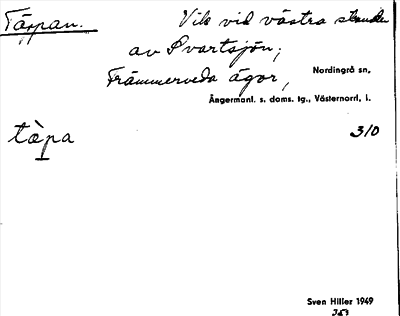 Täppan. Vik vid västra stranden
av Svartsjön;
Främmerveda ägor, Nordingrå sn,
Ångermanl. s. doms. tg., Västernorrl. l.
tàpa 310
Sven Hiller 1949